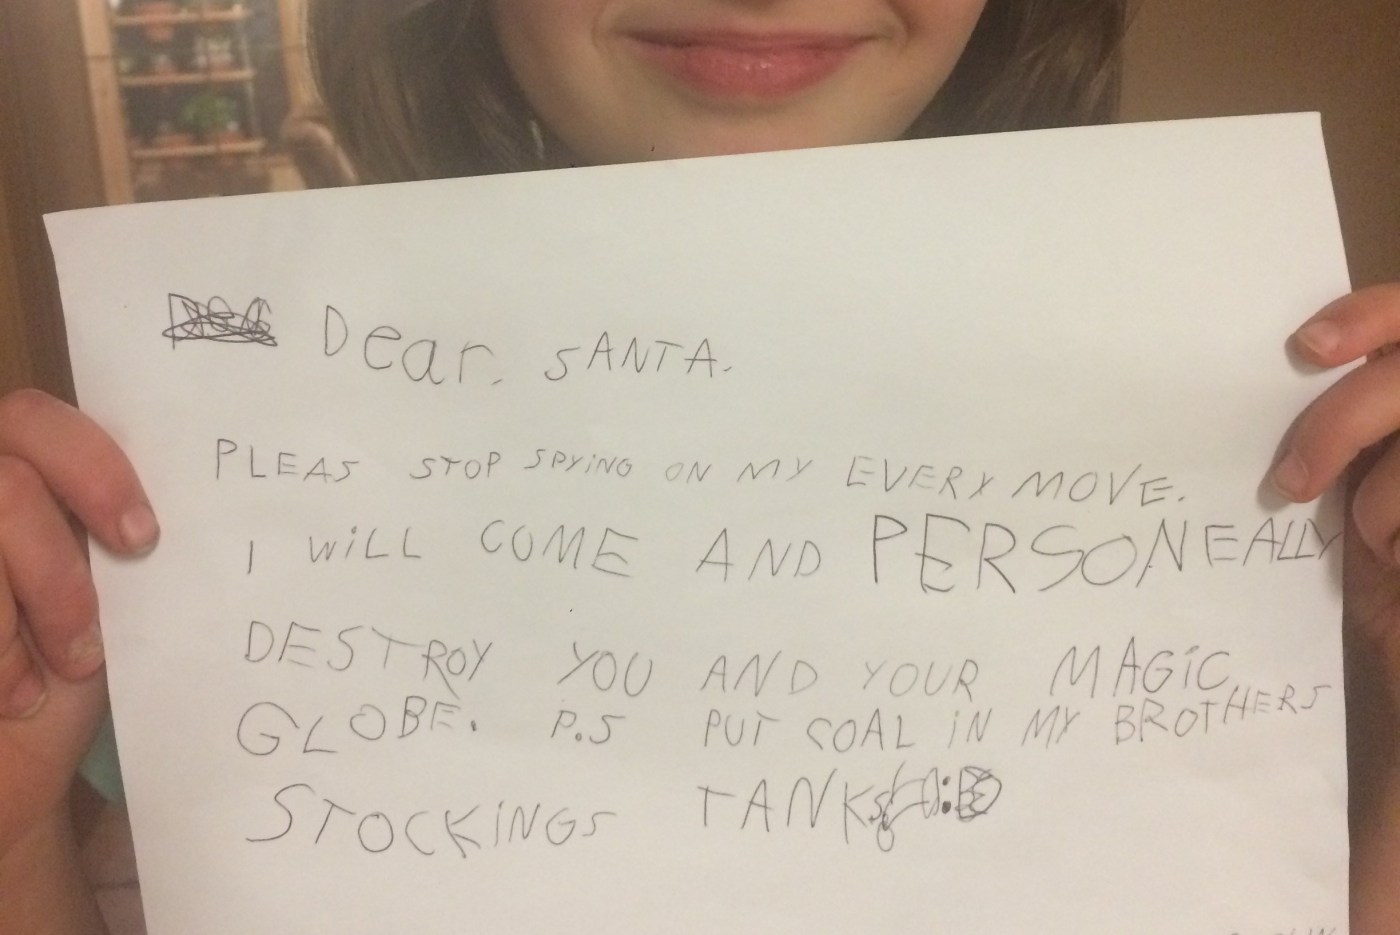 Dear. SANTA.
PLEAS STOP SPYING ON MY EVERY MOVE.
I WiLL COME AND PERSONEALLY
DESTROY YOU AND YOUR MAGiC
GLOBE. P.S PUT COAL iN MY BROTHERS
STOCKiNGS TANKs!